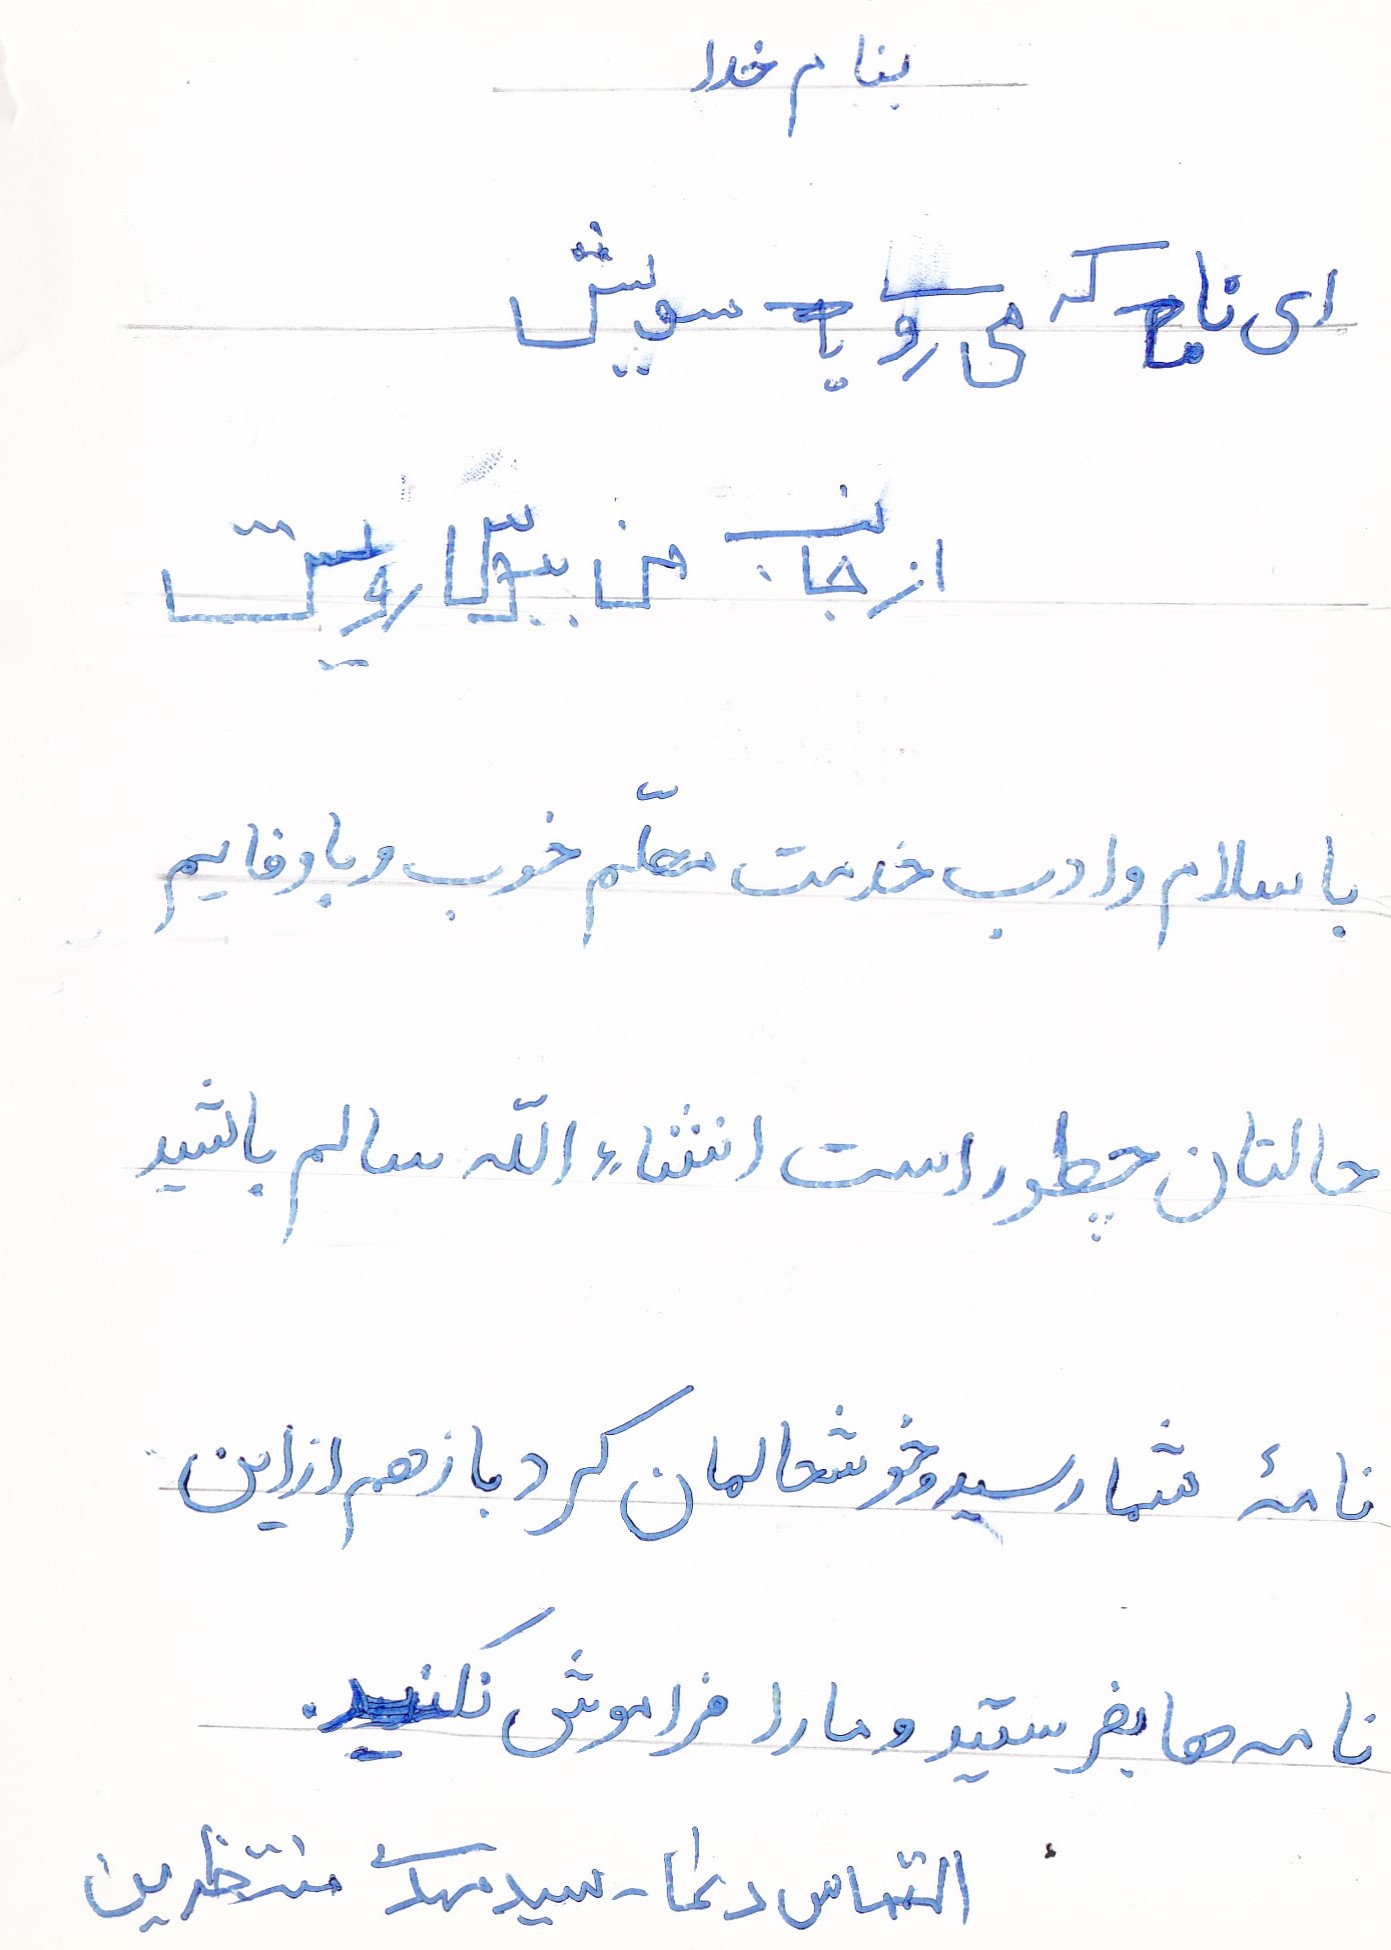 بنام خدا
ای نامه که می روی به سویش
از جانب من ببوس رویش
با سلام و ادب خدمت معلّم خوب و باوفایم
حالتان چطور است انشاء اللّه سالم باشید
نامۀ شما رسید و خوشحالمان کرد باز هم از این
نامه ها بفرستید و ما را فراموش نکنید.
التماس دعا - سید مهدی منتظرین